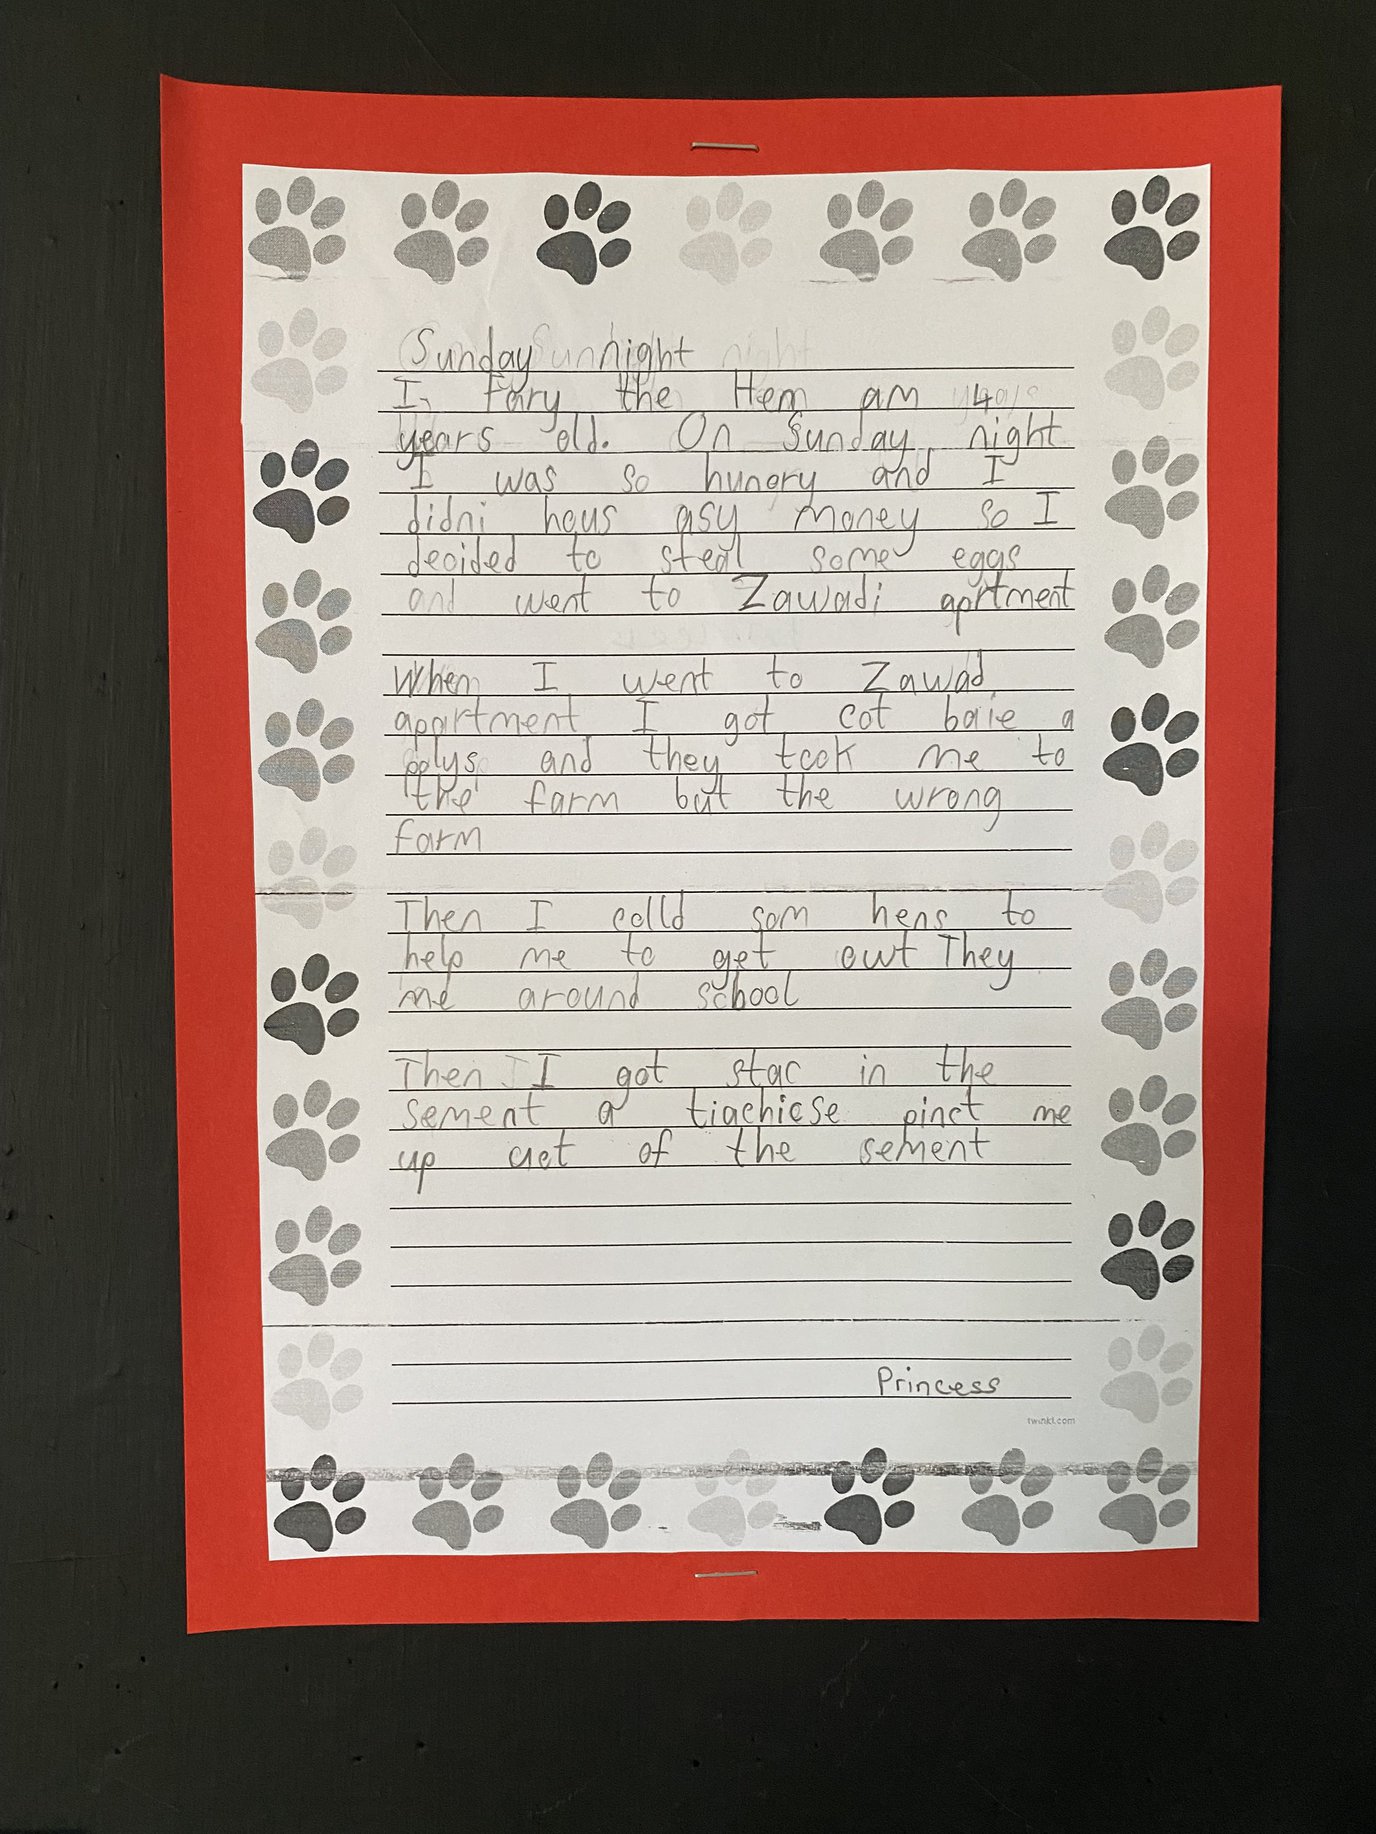 Sunday night
I, Fary the Hem am 4
years old. On Sunday night
I was so hungry and I
didni haus asy money so I
decided to steal some eggs
and went to Zawadi aprtment
When I went to Zawad
apartment I got cot baie a
polys and they took me to
the farm but the wrong
farm
Then I colld som hens to
help me to get owt They
me around school
Then I got stac in the
sement a tiachicse pinct me
up aet of the sement
Princess
twinkl.com